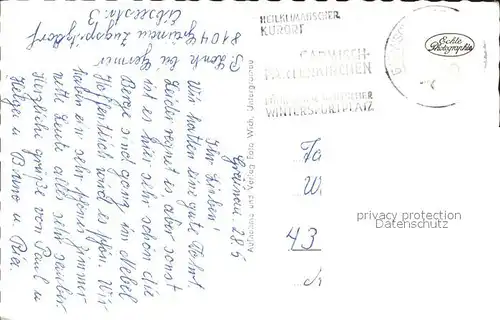 P. Lonk bei Germer
8104 Grainau Zugspitzdorf
Eibseestr. 3
Grainau 28.5
Ihr Lieben!
Wir hatten eine gute Fahrt.
Leider regnet es aber sonst
ist es hier sehr schön die
Berge sind ganz im Nebel
Hoffentlich wird es schön. Wir
haben ein sehr schönes Zimmer
nette Leute alles sehr sauber.
Herzliche Grüße von Paul u
Helga u Bruno u Pia.
Autobahn und Verlag Foto Wich, Untergrainau
HEILKLIMATISCHER
KURORT
GARMISCH-
PARTENKIRCHEN
WINTERSPORTPLATZ
Echte
Photographie
Fa
W
43
privacy protection
Datenschutz